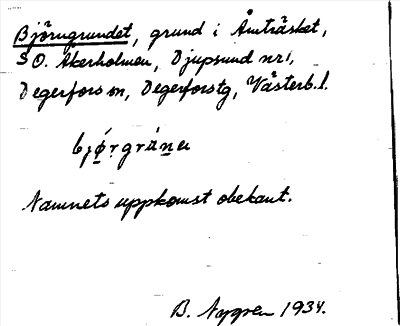 Björngrundet, grund i Åmträsket,
SO. Åkerholmen, Djupsund nr 1,
Degerfors sn, Degerforstg, Västerb. l.
bjø̀rgrúne
Namnets uppkomst obekant.
B. Nygren 1934.